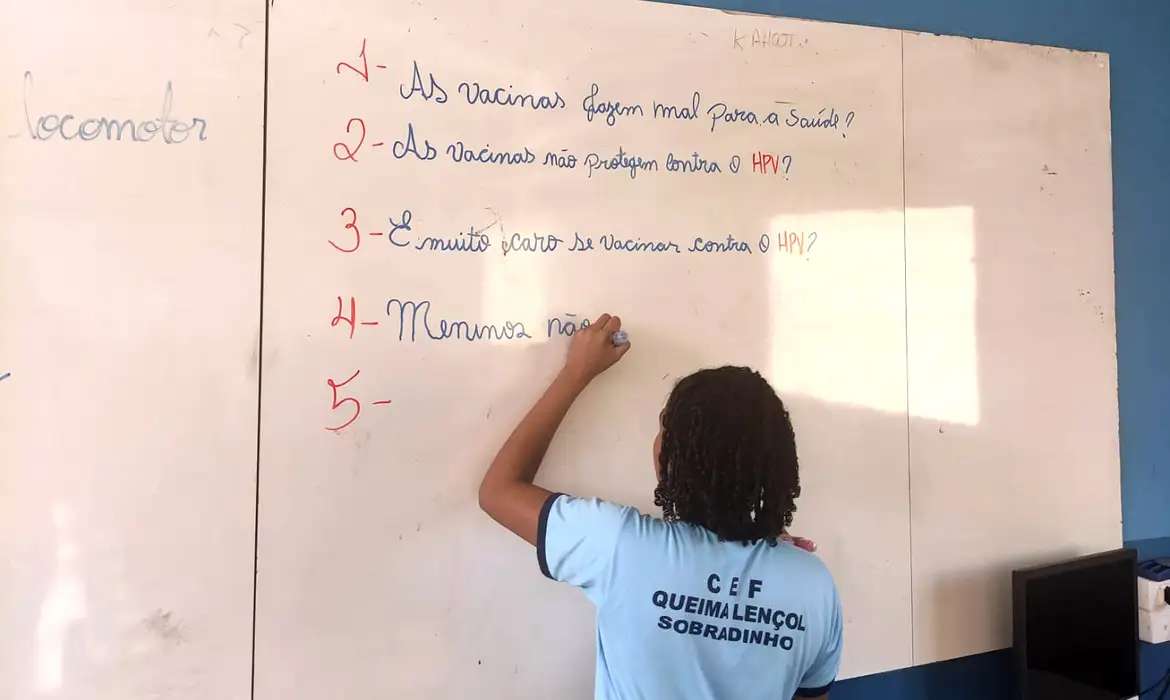 locomotor
KAHOOT
1- As vacinas fazem mal para a saúde?
2- As vacinas não protegem contra o HPV?
3- É muito caro se vacinar contra o HPV?
4- Meninos não
5-
CEF
QUEIMA LENÇOL
SOBRADINHO